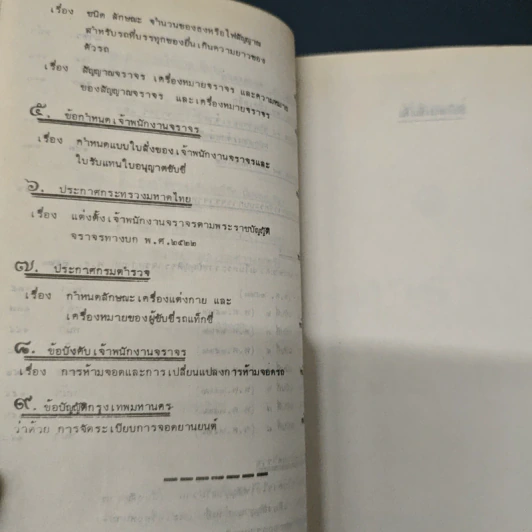 เรื่อง ชนิด ลักษณะ จำนวนของธงหรือไฟสัญญาณ
สำหรับรถที่บรรทุกของยื่นเกินความยาวของ
ตัวรถ
เรื่อง สัญญาณจราจร เครื่องหมายจราจร และความหมาย
ของสัญญาณจราจร และเครื่องหมายจราจร
๕. ข้อกำหนดเจ้าพนักงานจราจร
เรื่อง กำหนดแบบใบสั่งของเจ้าพนักงานจราจรและ
ใบรับแทนใบอนุญาตขับขี่
๖. ประกาศกระทรวงมหาดไทย
เรื่อง แต่งตั้งเจ้าพนักงานจราจรตามพระราชบัญญัติ
จราจรทางบก พ.ศ.๒๕๒๒
๗. ประกาศกรมตำรวจ
เรื่อง กำหนดลักษณะเครื่องแต่งกาย และ
เครื่องหมายของผู้ขับขี่รถแท็กซี่
๘. ข้อบังคับเจ้าพนักงานจราจร
เรื่อง การห้ามจอดและการเปลี่ยนแปลงการห้ามจอดรถ
๙. ข้อบัญญัติกรุงเทพมหานคร
ว่าด้วย การจัดระเบียบการจอดยานยนต์